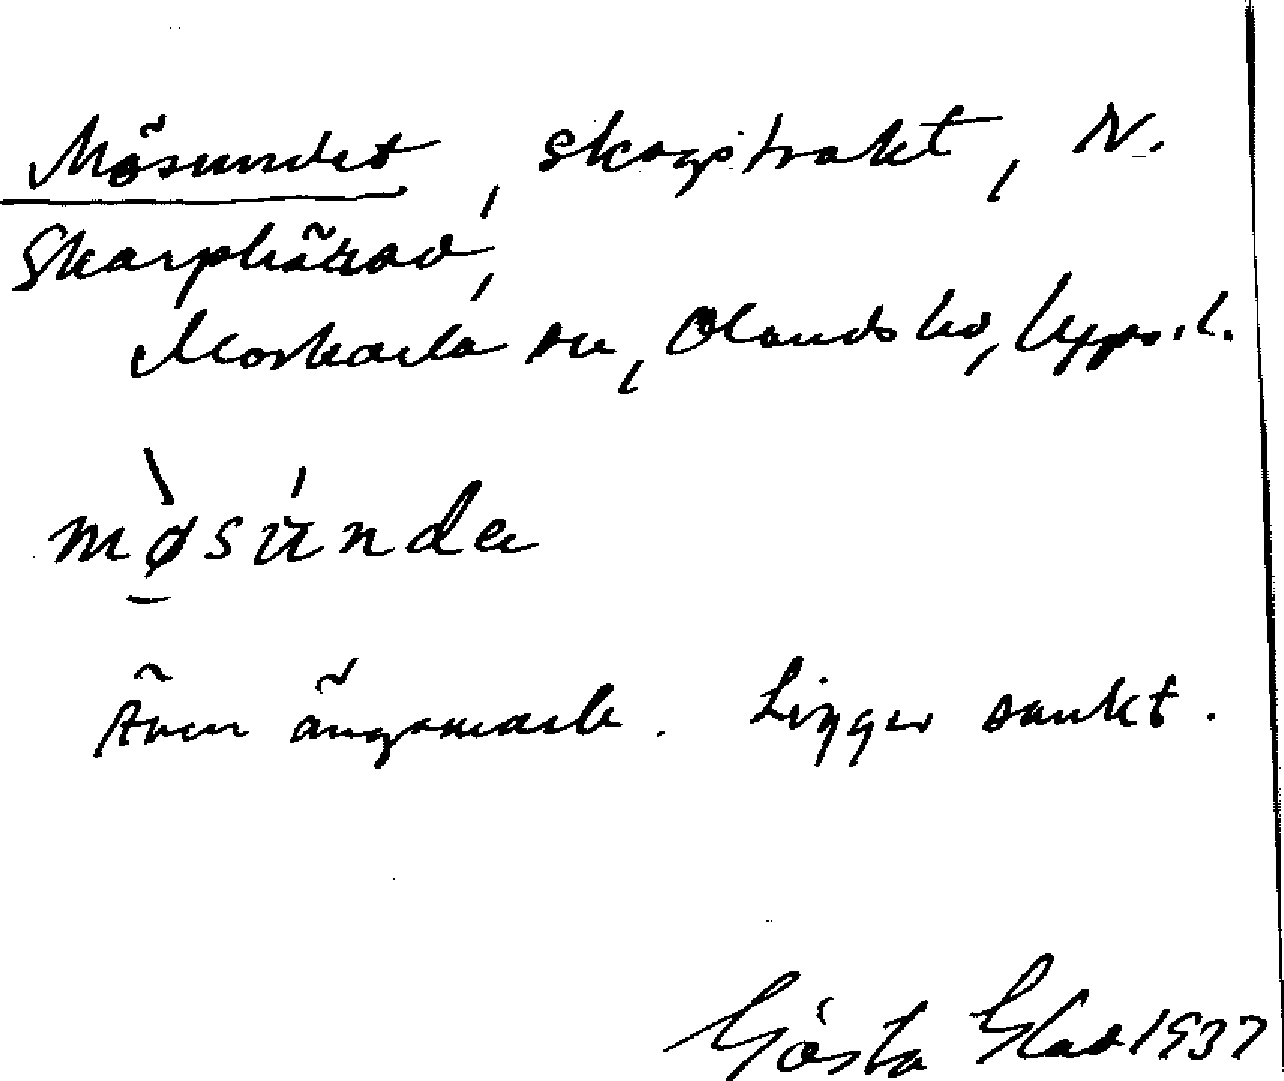 Mösundet, skogstrakt, N.
Skarphärad,
Morkarla sn, Olands hd, Upps.l.
mø̀súnda
Även ängsmark. Ligger sankt.
Gösta Glad 1937